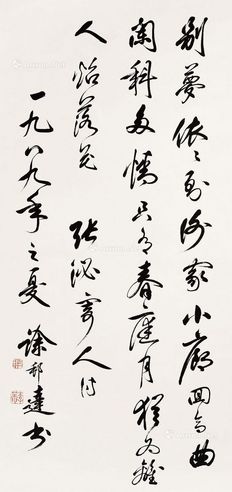 別夢依々到謝家小廊回合曲
闌斜多情只為春庭月猶為離
人照落花 張泌寄人詩
一九八九年之夏 徐邦達書